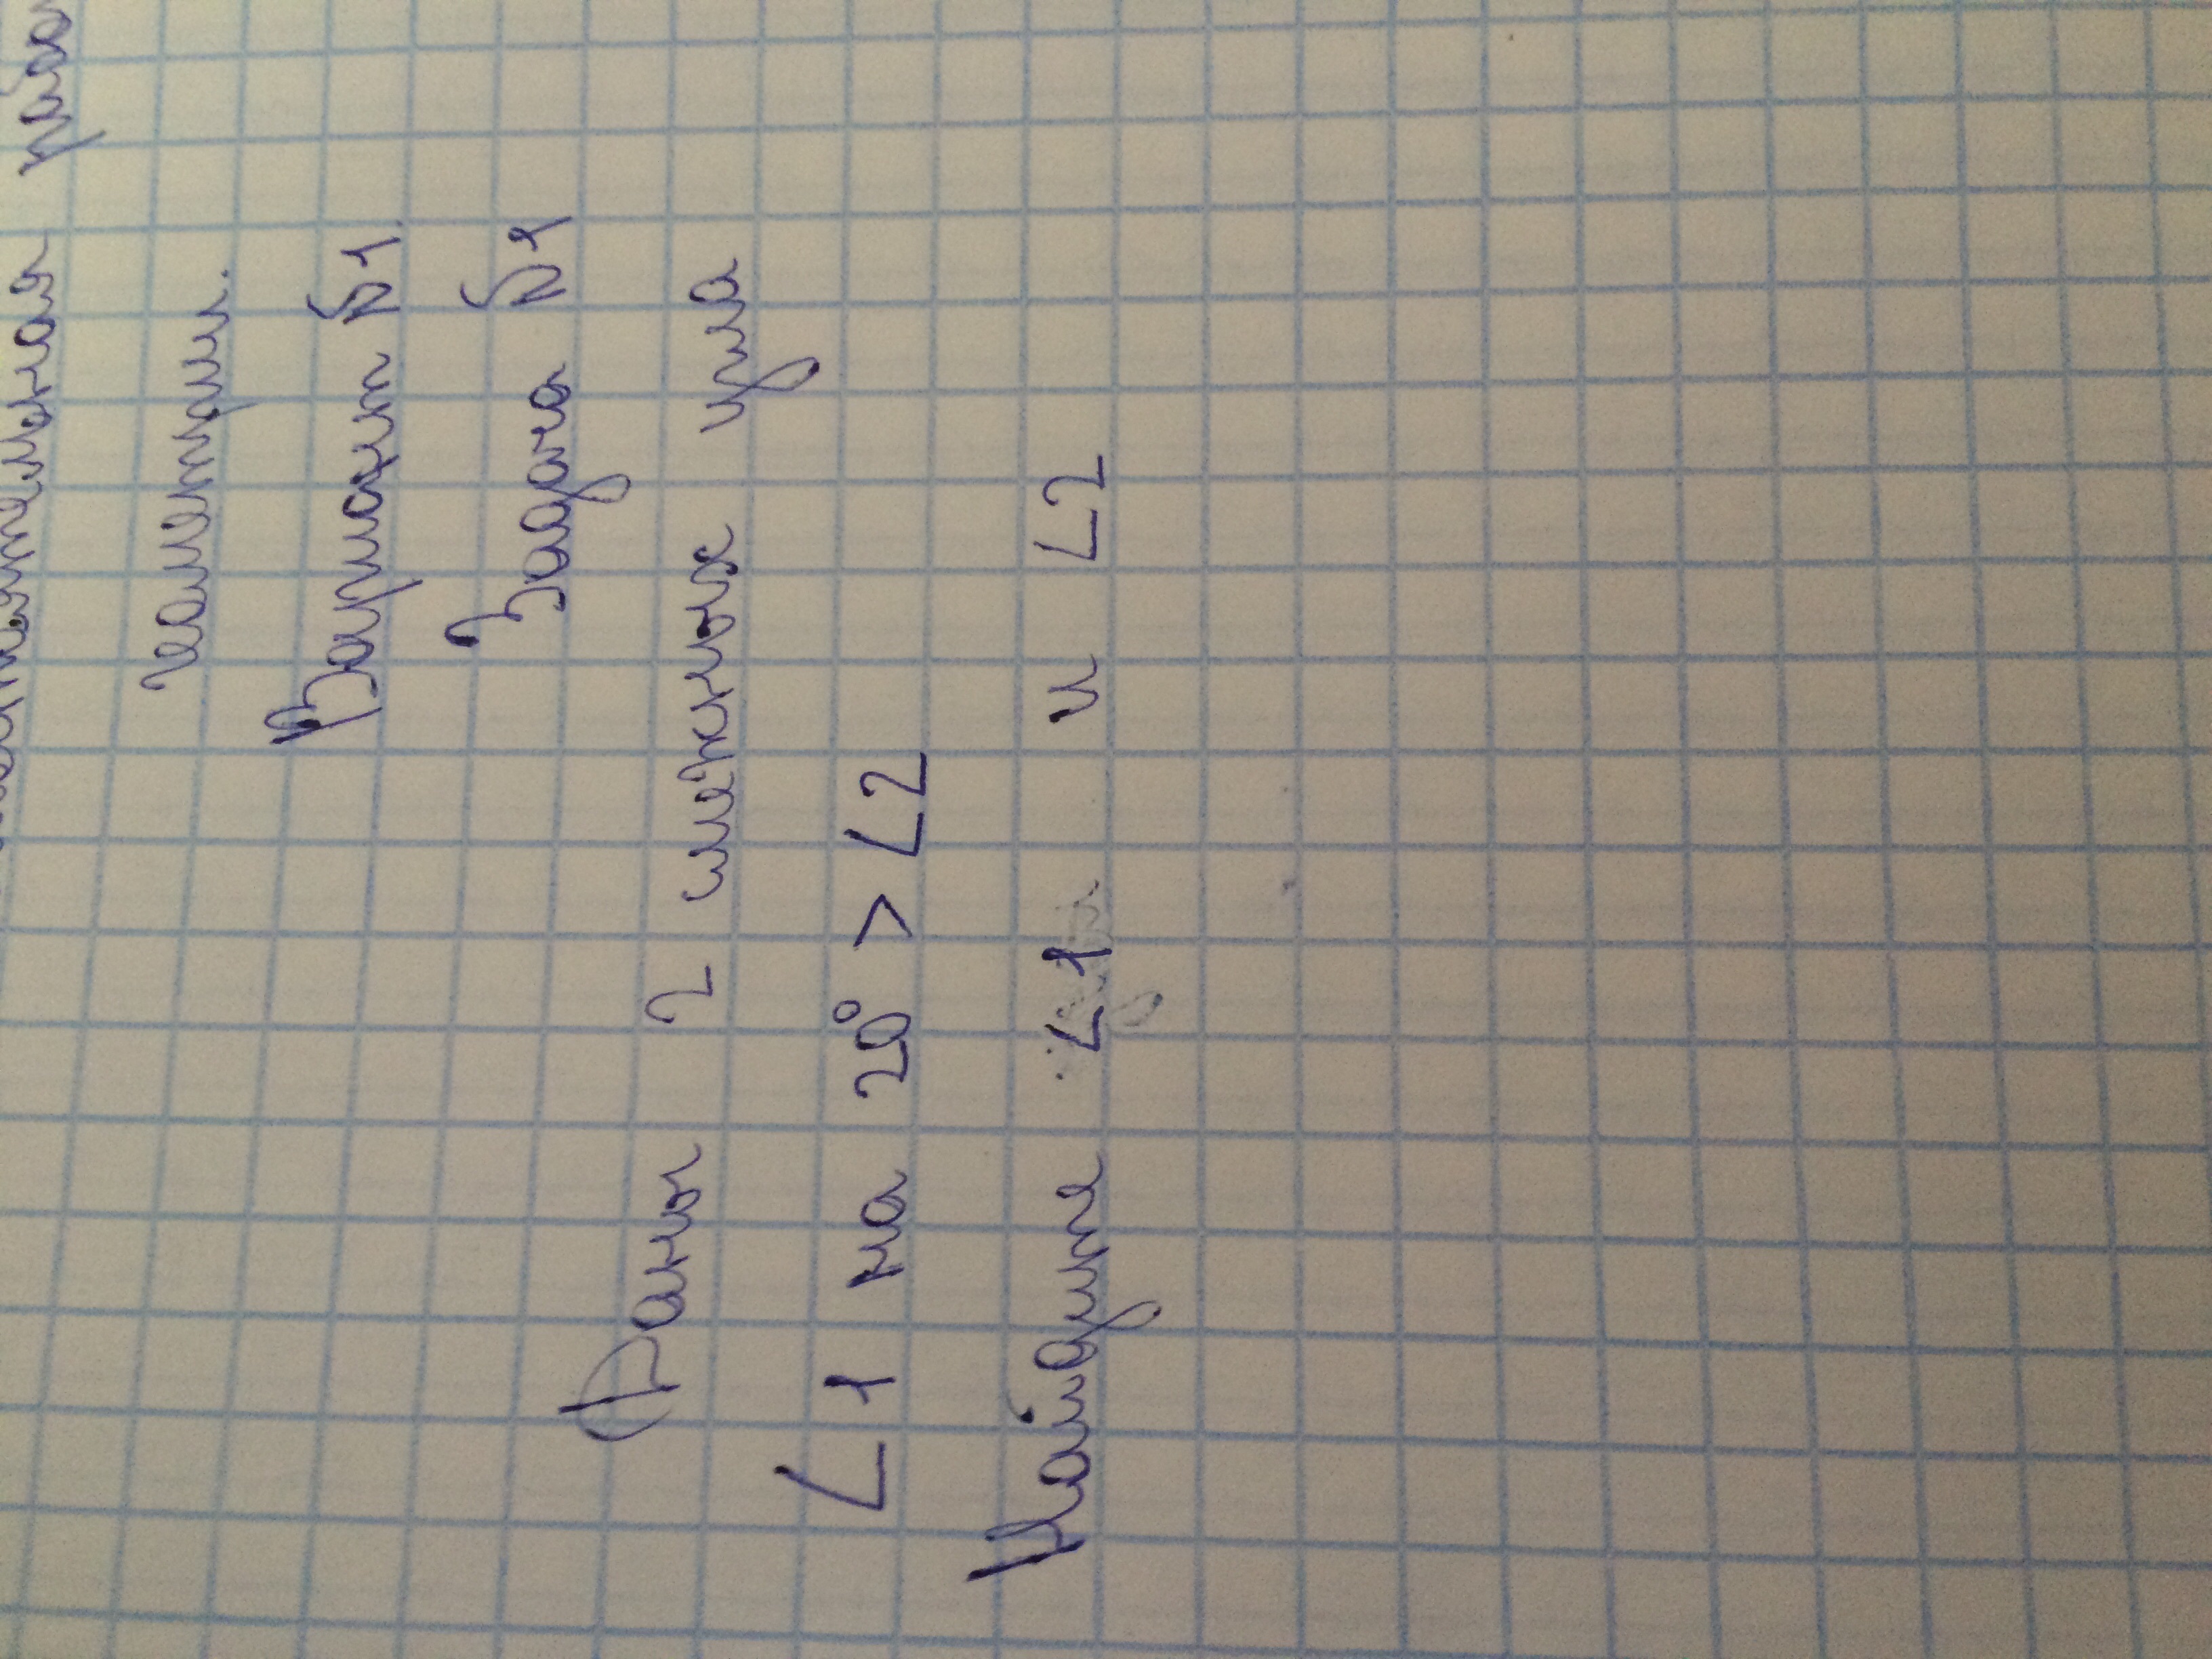 геометрии.
Вариант №1.
Задача №1
Даны 2 смежных угла
∠1 на 20° > ∠2
Найдите ∠1 и ∠2